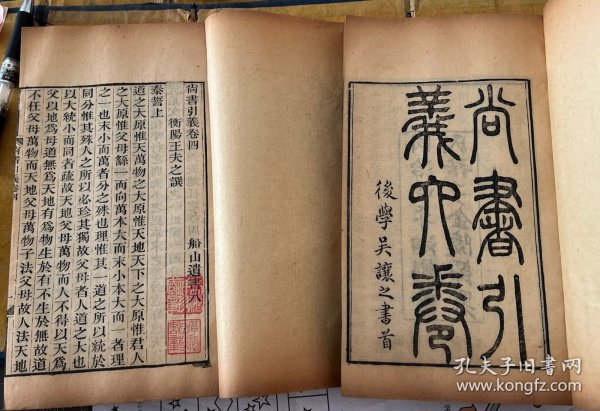 尚書引
義六卷
後學吳讓之書首
尚書引義卷四 船山遺書八
衡陽王夫之撰
泰誓上
道之大原惟天萬物之大原惟天地天下之大原惟君人
之大原惟父母繇一而向萬本大而末小本大而一者理
之一也末小而萬者分之殊也理惟其一道之所以統於
同分惟其殊人之所以必珍其獨故父母者人道之大也
以大統小而同者疏故天地父母萬物而人不得以天爲
父以地爲母道無爲天地有爲物生於有不生於無故道
不任父母萬物而天地父母萬物子法父母故人法天地
孔夫子旧书网
www.kongfz.com